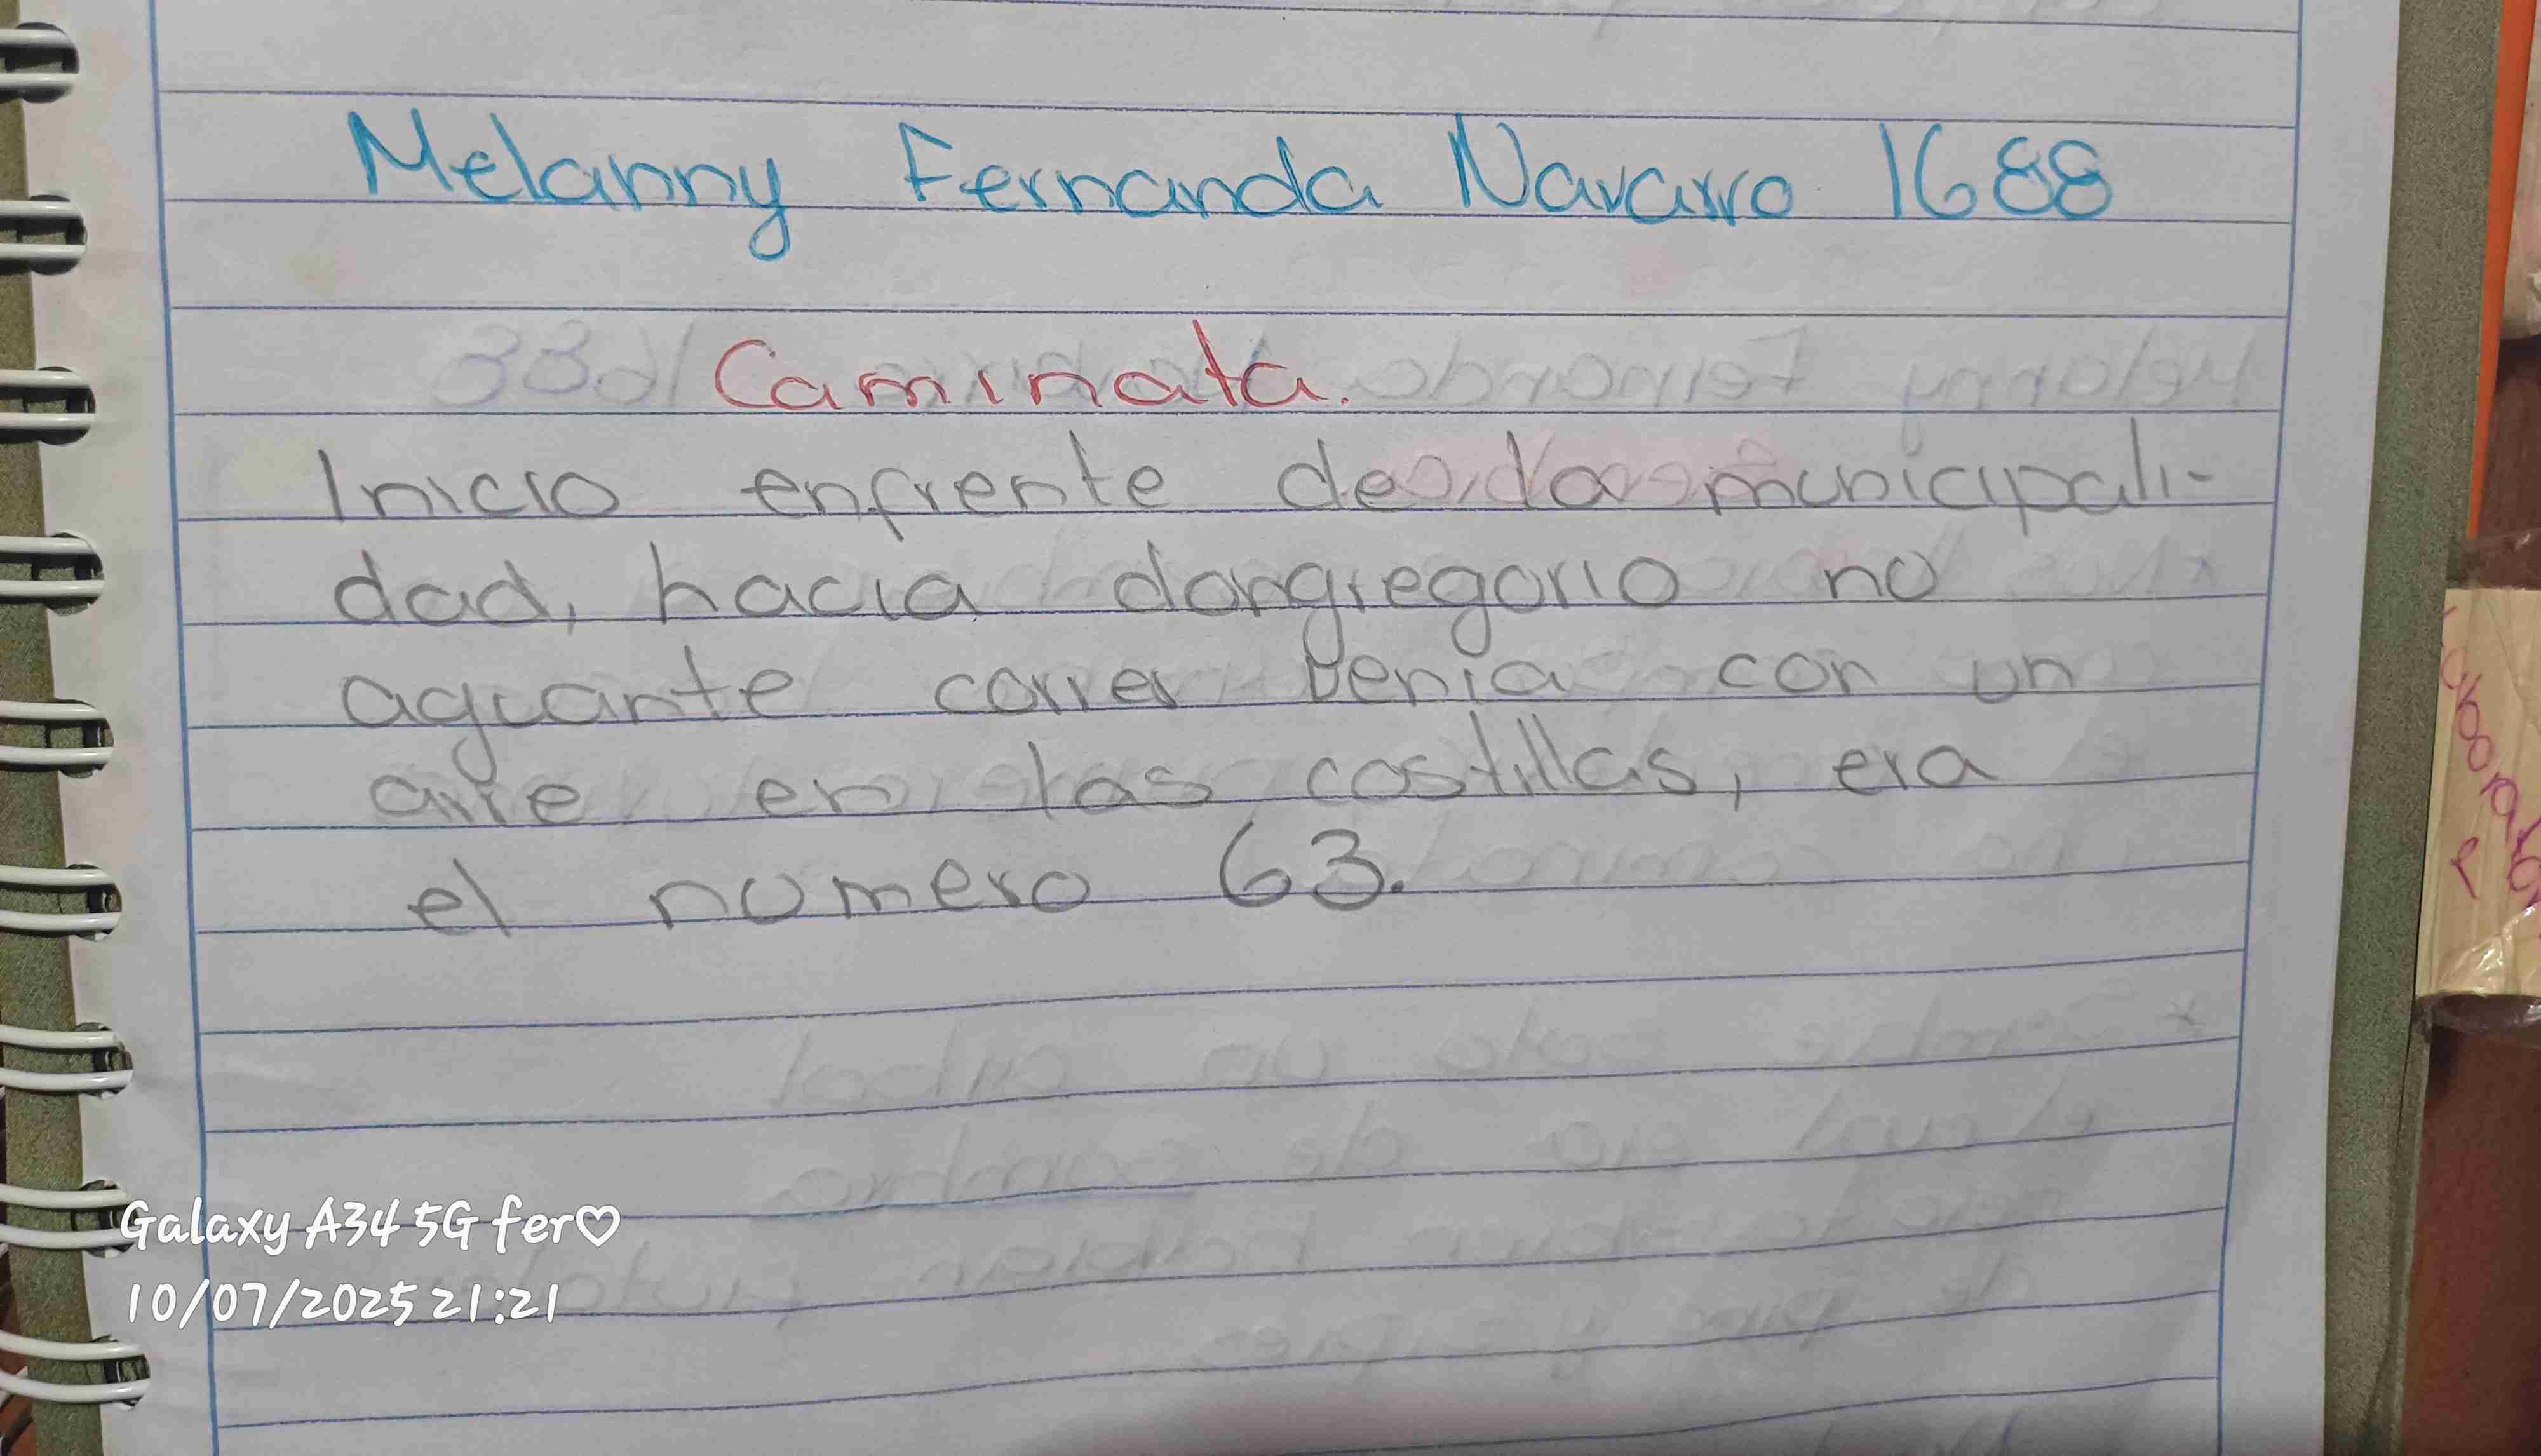 Melanny Fernanda Navarro 1688
Caminata.
Inicio enfrente de la municipali-
dad, hacia dongregorio no
aguante correr benia con un
aire en las costillas, era
el numero 63.
Galaxy A34 5G fer♡
10/07/2025 21:21